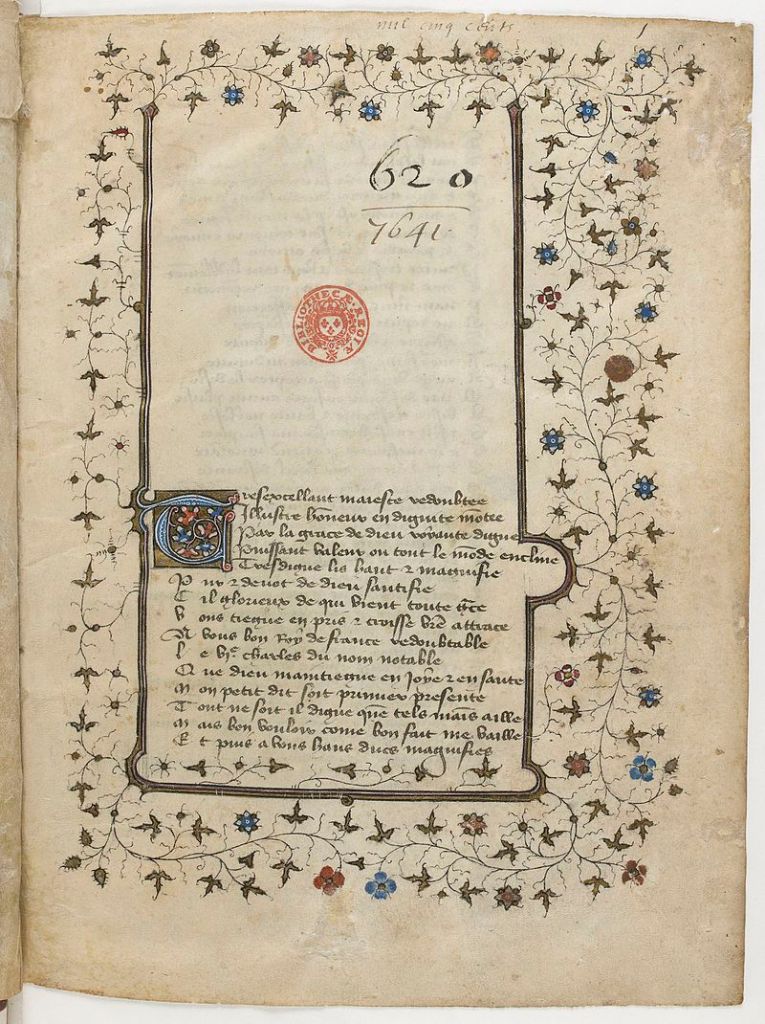 mil cinq cents
1
620
7641
BIBLIOTHECÆ REGIÆ
Tresexcellant maieste redoubtee
Illustre honneur en dignite motee
Par la grace de dieu royaute digne
Puissant valeur ou tout le mode encline
Tresdigne lis hault & magnifie
Pur & devot de dieu saintifie
Cil glorieux de qui vient toute gce
Vous tiegne en pris & croisse vre attrace
A vous bon Roy de france redoubtable
Le VIe charles du nom notable
Que dieu maintiegne en joye & en sante
Mon petit dit soit primier presente
Tout ne soit il digne que tels mais aille
Mais bon vouloir come bon fait me vaille
Et puis a vous haus ducs magnifies